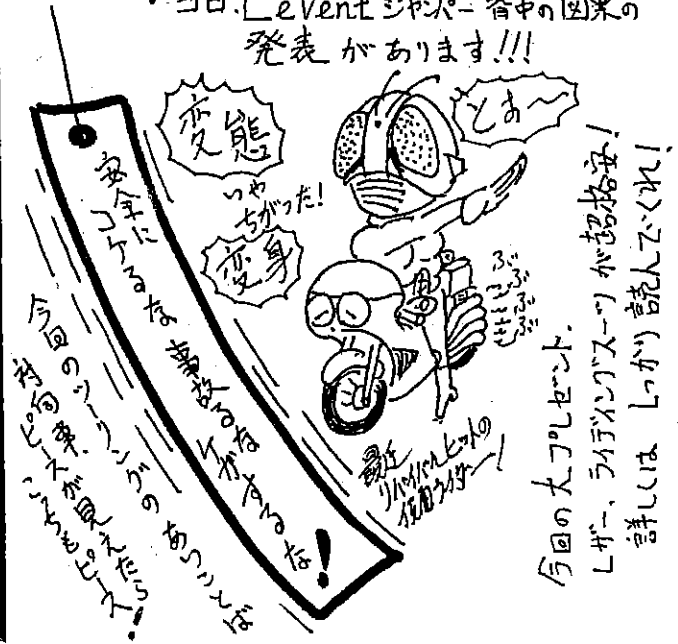 コロ. Levent ジャンパー 背中の図案の
発表があります!!!
変態
いや
ちがった!
変身
とぉ〜〜
ぶぶぶぶ
安全に
コケるな 事故るな
ケガするな!
今回のツーリングのあいことば
対向車、
ピースが見えたら
こっちもピース!
最近
リバイバルヒットの
今回の大プレゼント.
レザー、ライディングスーツが超格安!
詳しくは しっかり読んでくれ!